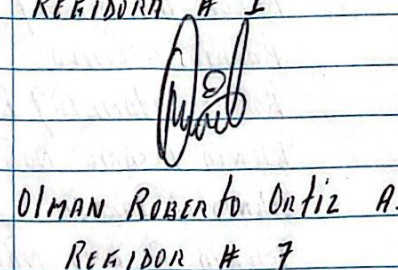 REGIDORA # 1
OlMAN ROBERTO ORTIZ A.
REGIDOR # 7